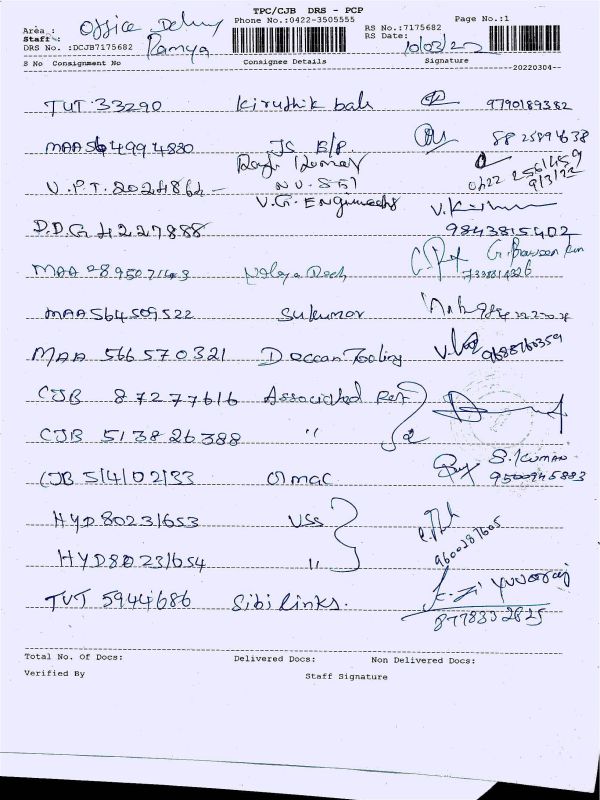 TPC/CJB DRS - PCP
Area : Office Delivery Phone No.:0422-3505555 Page No.:1
Staff: Ramya RS No.:7175682
DRS No. :DCJB7175682 RS Date: 10/03/22
S No Consignment No Consignee Details Signature
20220304
TUT 33290 Kiruthik bala 9790189382
MAA564994880 JS E/P.
V.P.T. 2024862 NU-SSI 0422 2561459
V.G. Engineers 9/3/22
D.D.G 4227888 9843815402
MAA 289507143
MAA564509522 Sukumar
MAA 566570321 Deccan Tooling 9688760359
CJB 87277616 Associated Ref
CJB 513826388 "
CJB 514102133 Olmac S. Kumar
9500945883
HYD80231653 USS 9600287605
HYD80231654 "
TUT 5944686 Sibi links. Yuvaraj
8778332825
Total No. Of Docs: Delivered Docs: Non Delivered Docs:
Verified By Staff Signature